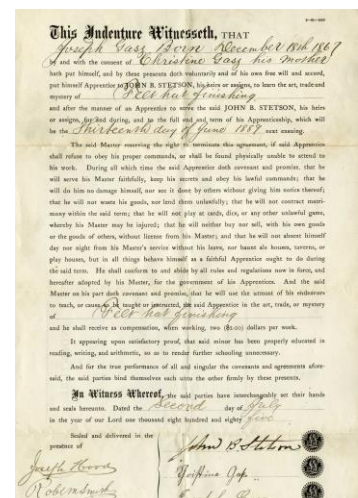 This Indenture Witnesseth, THAT
Joseph Gass Born December 18th 1867
by and with the consent of Christine Gass his mother
hath put himself, and by these presents doth voluntarily and of his own free will and accord,
put himself Apprentice to JOHN B. STETSON, his heirs or assigns, to learn the art, trade and
mystery of Felt hat finishing
and after the manner of an Apprentice to serve the said JOHN B. STETSON, his heirs
or assigns, for and during, and to the full end and term of his Apprenticeship, which will
be the Thirteenth day of June 1889 next ensuing.
The said Master reserving the right to terminate this agreement, if said Apprentice
shall refuse to obey his proper commands, or shall be found physically unable to attend
to his work. During all which time the said Apprentice doth covenant and promise, that he
will serve his Master faithfully, keep his secrets and obey his lawful commands; that he
will do him no damage himself, nor see it done by others without giving him notice thereof;
that he will not waste his goods, nor lend them unlawfully; that he will not contract matri-
mony within the said term; that he will not play at cards, dice, or any other unlawful game,
whereby his Master may be injured; that he will neither buy nor sell, with his own goods
or the goods of others, without license from his Master; and that he will not absent himself
day nor night from his Master's service without his leave, nor haunt ale houses, taverns, or
play houses, but in all things behave himself as a faithful Apprentice ought to do during
the said term. He shall conform to and abide by all rules and regulations now in force, and
hereafter adopted by his Master, for the government of his Apprentices. And the said
Master on his part doth covenant and promise, that he will use the utmost of his endeavors
to teach, or cause to be taught or instructed, the said Apprentice in the art, trade, or mystery
of Felt hat finishing
and he shall receive as compensation, when working, two ($2.00) dollars per week.
It appearing upon satisfactory proof, that said minor has been properly educated in
reading, writing, and arithmetic, so as to render further schooling unnecessary.
And for the true performance of all and singular the covenants and agreements afore-
said, the said parties bind themselves each unto the other firmly by these presents.
In Witness Whereof, the said parties have interchangeably set their hands
and seals hereunto. Dated the Second day of July
in the year of our Lord one thousand eight hundred and eighty five
Sealed and delivered in the
presence of
John B Stetson
Joseph Hood
Christine Gass